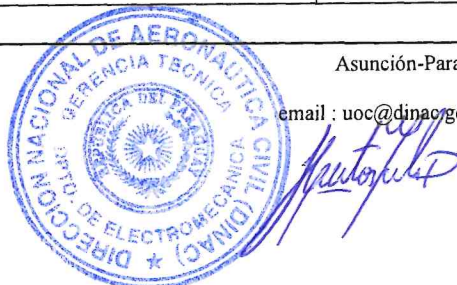 Asunción-Para
email : uoc@dinac.go
DIRECCION NACIONAL DE AERONAUTICA CIVIL (DINAC)
GERENCIA TECNICA
DPTO. DE ELECTROMECANICA
REPUBLICA DEL PARAGUAY